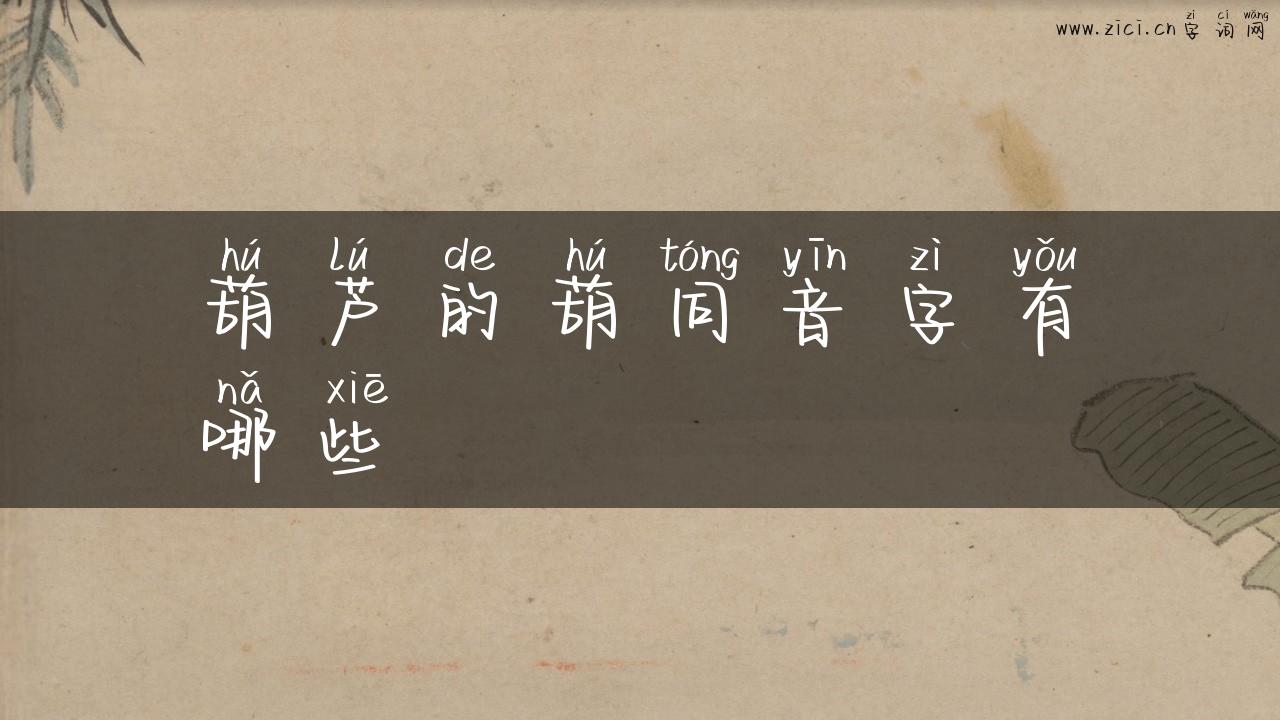 zì cí wǎng
www.zici.cn 字词网
hú lú de hú tóng yīn zì yǒu
葫芦的葫同音字有
nǎ xiē
哪些